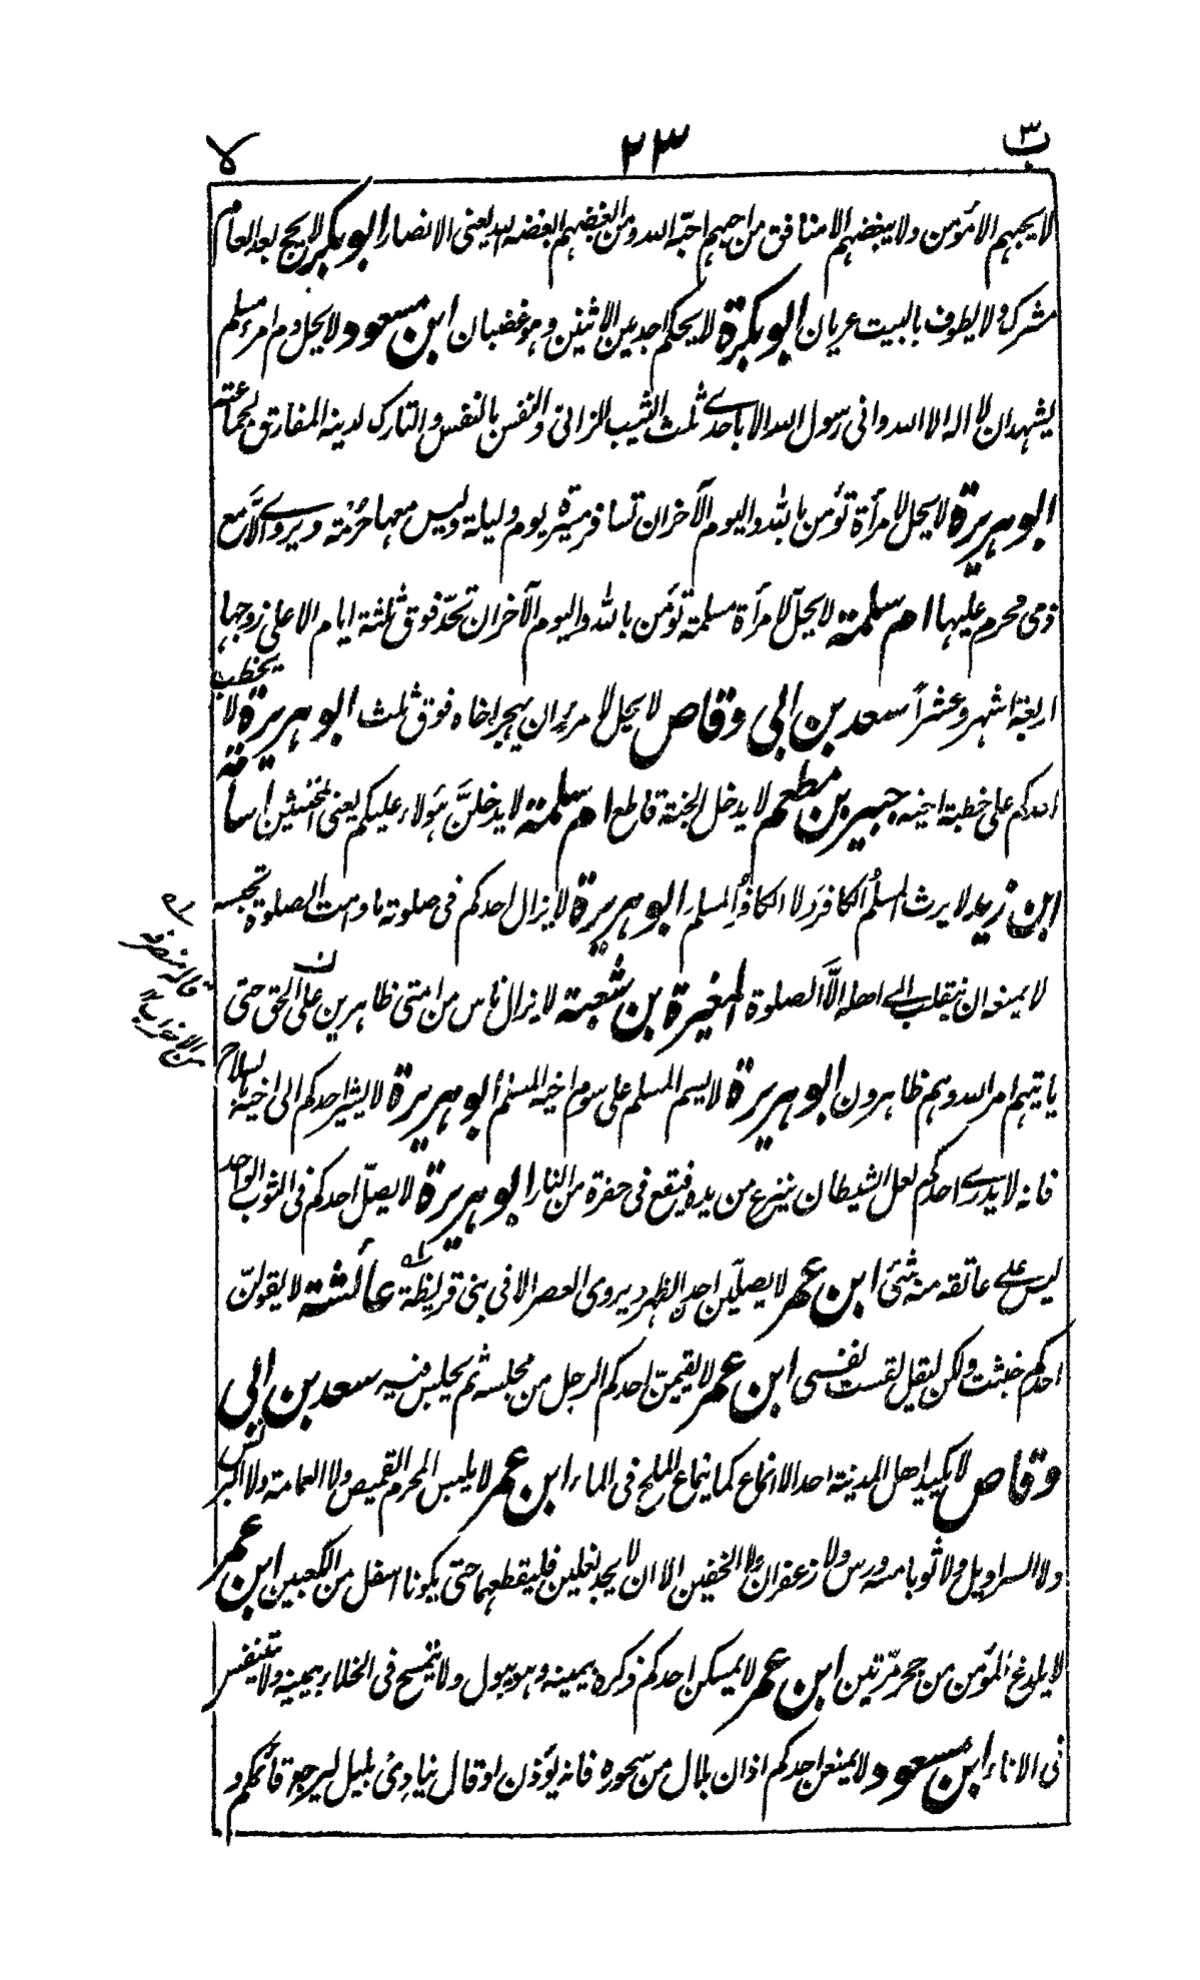 ب٣ ٢٣ لا
لا يحبهم الا مؤمن ولا يبغضهم الا منافق من احبهم احبّه الله ومن ابغضهم ابغضه الله يعنى الانصار ابو بكر لا يحج بعد العام
مشرك ولا يطوف بالبيت عريان ابو بكرة لا يحكم احد بين الاثنين وهو غضبان ابن مسعود لا يحل دم امرء مسلم
يشهد ان لا اله الا الله وانى رسول الله الا باحدى ثلث الثيب الزانى والنفس بالنفس والتارك لدينه المفارق لجماعته
ابو هريرة لا يحل لامرأة تؤمن بالله واليوم الآخر ان تسافر مسيرة يوم وليلة وليس معها حرمة ويروى الّا مع
ذى محرم عليها ام سلمة لا يحلّ لامرأة مسلمة تؤمن بالله واليوم الآخر ان تحدّ فوق ثلثة ايام الا على زوجها
اربعة اشهر وعشراً سعد بن ابى وقاص لا يحل لامرءٍ ان يهجر اخاه فوق ثلث ابو هريرة لا يخطب
احدكم على خطبة اخيه جبير بن مطعم لا يدخل الجنة قاطع ام سلمة لا يدخلنَّ هؤلاء عليكم يعنى المخنثين اسامة
ابن زيد لا يرث المسلمُ الكافرَ ولا الكافرُ المسلمَ ابو هريرة لا يزال احدكم فى صلوة ما دامت الصلوة تحبسه
لا يمنعه ان ينقلب الى اهله الَّا الصلوة المغيرة بن شعبة لا يزال ناس من امتى ظاهرين على الحق حتى
ياتيهم امر الله وهم ظاهرون ابو هريرة لا يسم المسلم على سوم اخيه المسلم ابو هريرة لا يشير احدكم الى اخيه بالسلاح
فانه لا يدرى احدكم لعل الشيطان ينزع من يده فيقع فى حفرة من النار ابو هريرة لا يصلّ احدكم فى الثوب الواحد
ليس على عاتقه منه شئ ابن عمر لا يصلّين احد الظهر ويروى العصر الا فى بنى قريظة عائشة لا يقولنّ
احدكم خبثت ولكن ليقل لقست نفسى ابن عمر لا يقيمنّ احدكم الرجل من مجلسه ثم يجلس فيه سعد بن ابى
وقاص لا يكيد اهل المدينة احد الا انماع كما ينماع الملح فى الماء ابن عمر لا يلبس المحرم القميص ولا العمامة ولا البرنس
ولا السراويل ولا ثوبا مسه ورس ولا زعفران ولا الخفين الا ان لا يجد نعلين فليقطعهما حتى يكونا اسفل من الكعبين ابن عمر
لا يلدغ المؤمن من جحر مرّتين ابن عمر لا يمسكن احدكم ذكره بيمينه وهو يبول ولا يتمسح فى الخلاء بيمينه ولا يتنفس
فى الاناء ابن مسعود لا يمنعن احدكم اذان بلال من سحوره فانه يؤذن او قال ينادى بليل ليرجع قائمكم و